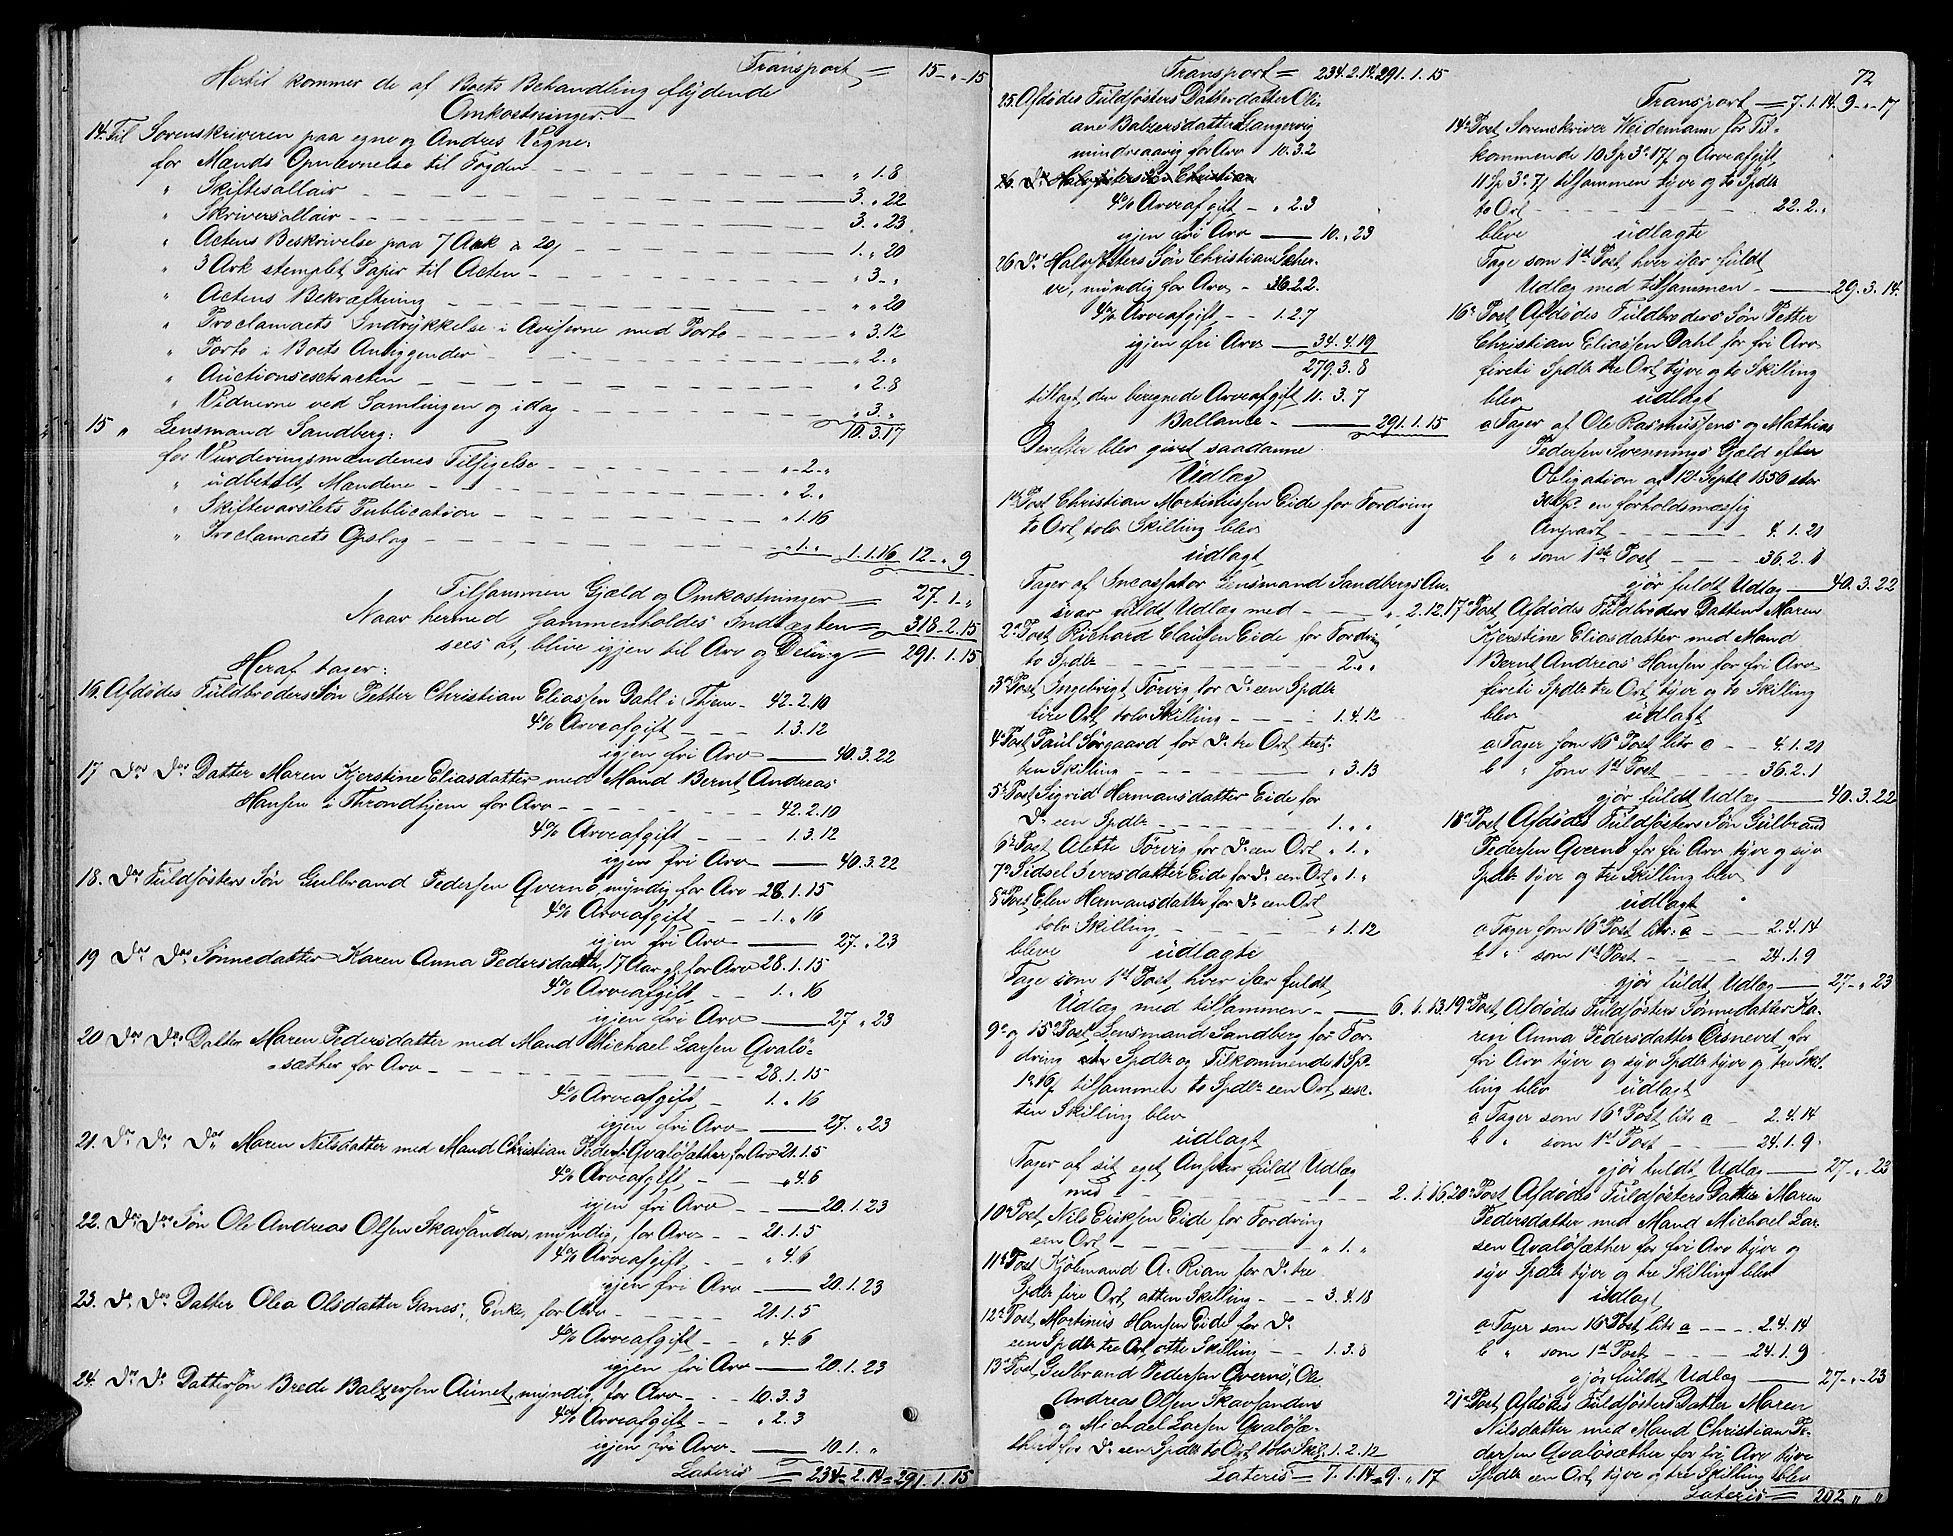 Transport = 15 - „ - 15
Hertil kommer de af Boets Behandling flydende
Omkostninger
14. Til Sorenskriveren paa egne og Andres Vegne:
for Mænds Opnævnelse til Fogden - - - „ 1. 8
„ Skiftesallair - - - 3. „ 22
„ Skriversallair - - - 3. „ 23
„ Actens Beskrivelse paa 7 Ark a 20 - - - 1. „ 20
„ 3 Ark stemplet Papir til Acten - - - „ 3 - „
„ Actens Bekræftning - - - „ „ 20
„ Proclamaets Indrykkelse i Aviserne med Porto - - - „ 3. 12
„ Porto i Boets Anliggender - - - „ 2. „
„ Auctionsextracten - - - „ 2. 8
„ Vidnerne ved Samlingen og idag - - - „ 3. „
10. 3. 17
15 „ Lensmand Sandberg:
for Vurderingsmændenes Tilsigelse - - - „ - 2 - „
„ udbetalt Mændene - - - „ 2. „
„ Skiftevarslets Publication - - - „ 1. 16
„ Proclamaets Opslag - - - „ 1. „ 1. 1. 16 12 - „ 9
Tilsammen Gjæld og Omkostninger = 27 - 1 - „
Naar hermed sammenholdes Indtægten = 318 - 2. 15
sees at blive igjen til Arv og Deling = 291. 1. 15
Heraf tager:
16. Afdødes Fuldbroders Søn Petter Christian Eliassen Dahl i Thjem - 42 - 2. 10
4% Arveafgift - - - 1. 3. 12
igjen fri Arv — 40. 3. 22
17 Do Do Datter Maren Kjerstine Eliasdatter med Mand Bernt Andreas
Hansen i Throndhjem for Arv - - - 42. 2. 10
4% Arveafgift - - 1. 3. 12
igjen fri Arv — 40. 3. 22
18. Do Fuldsøsters Søn Gulbrand Pedersen Qvernø, myndig for Arv 28. 1. 15
4% Arveafgift - - - 1. „ 16
igjen fri Arv — 27. „ 23
19 Do Do Sønnedatter Karen Anna Pedersdatter, 17 Aar gl. for Arv 28. 1. 15
4% Arveafgift - - 1. „ 16
igjen fri Arv — 27 „ 23
20 Do Do Datter Maren Pedersdatter med Mand Michael Larsen Qvalø-
sæther for Arv - - - 28. 1. 15
4% Arveafgift - - 1. „ 16
igjen fri Arv — 27. „ 23
21. Do Do Do Maren Nilsdatter med Mand Christian Peders: Qvaløsæther for Arv 21. 1. 5
4% Arveafgift - - - „ 4. 6
igjen fri Arv - - — 20. 1. 23
22. Do Do Søn Ole Andreas Olsen Skavsanden, myndig, for Arv - - 21. 1. 5
4% Arveafgift - - „ 4. 6
igjen fri Arv — 20. 1. 23
23. Do Do Datter Olea Olsdatter Ganes, Enke, for Arv - - - 21. 1. 5
4% Arveafgift - - „ 4. 6
igjen fri Arv — 20. 1. 23
24. Do Do Dattersøn Brede Balzersen Aunet, myndig, for Arv - - 10. 3. 3
4% Arveafgift - - „ 2. 3
igjen fri Arv - — 10. 1. „
Lateris = 234 - 2. 14 = 291. 1. 15
Transport = 234. 2. 14. 291. 1. 15
25. Afdødes Fuldsøsters Datterdatter Oli-
ane Balzersdatter Langervig
mindreaarig for Arv 10. 3. 2
26. Do Halvsøsters Søn Christian
4% Arveafgift - „ 2. 3
igjen fri Arv — 10. „ 23
26 Do Halvsøsters Søn Christian Scher-
vi, myndig for Arv - 36. 2. 2.
4% Arveafgift - - 1. 2. 7
igjen fri Arv — 34. 4. 19
279. 3. 8
tillagt den beregnede Arveafgift 11. 3. 7
Ballance - — 291. 1. 15
Derefter blev givet saadanne
Udlæg
1ste Post Christian Mortinussen Eide for Fordring
to Ort, tolv Skilling blev
udlagt
Tager af Incassator Lensmand Sandbergs An-
svar fuldt Udlæg med - - - „ 2. 12
2 Post Richard Clausen Eide for Fordring
to Spdlr - - - 2. „ „
3 Post Ingebrigt Torvig for Do een Spdlr
fire Ort tolv Skilling - - - 1. 4. 12
4 Post Paul Sørgaard for Do tre Ort tret-
ten Skilling - - - „ 3. 13
5 Post Sigrid Hermansdatter Eide for
Do een Spdlr - - - 1. „ „
6 Post Alette Torvig for Do een Ort „ 1. „
7 Sidsel Iversdatter Eide for Do een Ort „ 1. „
8 Post, Elen Hermansdatter for Do een Ort
tolv Skilling - - - „ 1. 12
bleve udlagte
Tage som 1ste Post, hver især fuldt
Udlæg med tilsammen - — 6. 1. 13
9 og 15 Post Lensmand Sandberg for For-
dring een Spdlr og Tilkommende 1 Sp
1 16 tilsammen to Spdlr een Ort sex-
ten Skilling blev
udlagt
Tager af sit eget Ansvar fuldt Udlæg
med - - - 2. 1. 16
10 Post, Nils Eriksen Eide for Fordring
een Ort - - - „ 1. „
11 Post Kjøbmand A. Rian for Do tre
Spdlr fire Ort, atten Skilling - - - 3. 4. 18
12 Post, Mortinus Hansen Eide for Do
een Spdlr tre Ort otte Skilling - - 1. 3. 8
13 Post, Gulbrand Pedersen Qvernø, Ole
Andreas Olsen Skavsanden
og Michael Larsen Qvaløsæ-
ther for Do een Spdlr to Ort tolv Skil. 1. 2. 12
Lateris = 7. 1. 14 = 9. „ 17
72
Transport = 7. 1. 14. 9 - „ - 17
14 Post, Sorenskriver Weidemann for Til-
kommende 10 Sp 3 17 og Arveafgift
11 Sp 3 7 tilsammen tyve og to Spdlr
to Ort - - - 22. 2. „
bleve udlagte
Tage som 1ste Post, hver især fuldt
Udlæg med tilsammen - — 29. 3. 14.
16 Post, Afdødes Fuldbroders Søn Petter
Christian Eliassen Dahl for fri Arv
fireti Spdlr tre Ort, tyve og to Skilling
blev udlagt
a Tager af Ole Rasmussens og Mathias
Pedersen Svennings Gjæld efter
Obligation af 12 Septb 1856 stor
30 Sp en forholdsmæssig
Anpart - - - 4. 1. 21
b „ som 1ste Post - - - 36. 2. 1
gjør fuldt Udlæg — 40. 3. 22
17 Post Afdødes Fuldbroders Datter Maren
Kjerstine Eliasdatter med Mand
Bernt Andreas Hansen for fri Arv
fireti Spdlr tre Ort, tyve og to Skilling
blev udlagt
a Tager som 16 Post litr a - - 4. 1. 21
b „ som 1ste Post - - - 36. 2. 1
gjør fuldt Udlæg — 40. 3. 22
18 Post Afdødes Fuldsøsters Søn Gulbrand
Pedersen Qvernø for fri Arv tyve og syv
Spdlr tyve og tre Skilling blev
udlagt
a Tager som 16 Post litr: a - - - 2. 4. 14
b „ som 1ste Post - - - 24. 1. 9
gjør fuldt Udlæg — 27 - „ 23
19 Post, Afdødes Fuldsøsters Sønnedatter Ka-
ren Anna Pedersdatter Ersnevet, for
fri Arv tyve og syv Spdlr tyve og tre Skil-
ling blev udlagt
a Tager som 16 Post, litr a - 2. 4. 14
b „ som 1ste Post - - - 24. 1. 9.
gjør fuldt Udlæg — 27 - „ 23
20 Post, Afdødes Fuldsøsters Datter Maren
Pedersdatter med Mand Michael Lar-
sen Qvaløsæther for fri Arv tyve og
syv Spdlr tyve og tre Skilling blev
udlagt
a Tager som 16 Post, litr a - - - 2. 4. 14
b „ som 1ste Post - - - 24. 1. 9
gjør fuldt Udlæg — 27 - „ - 23
21 Post, Afdødes Fuldsøsters Datter Maren
Nilsdatter med Mand Christian Pe-
dersen Qvaløsæther for fri Arv tyve
Spdlr een Ort, tyve og tre Skilling blev
Lateris = 202 „ „